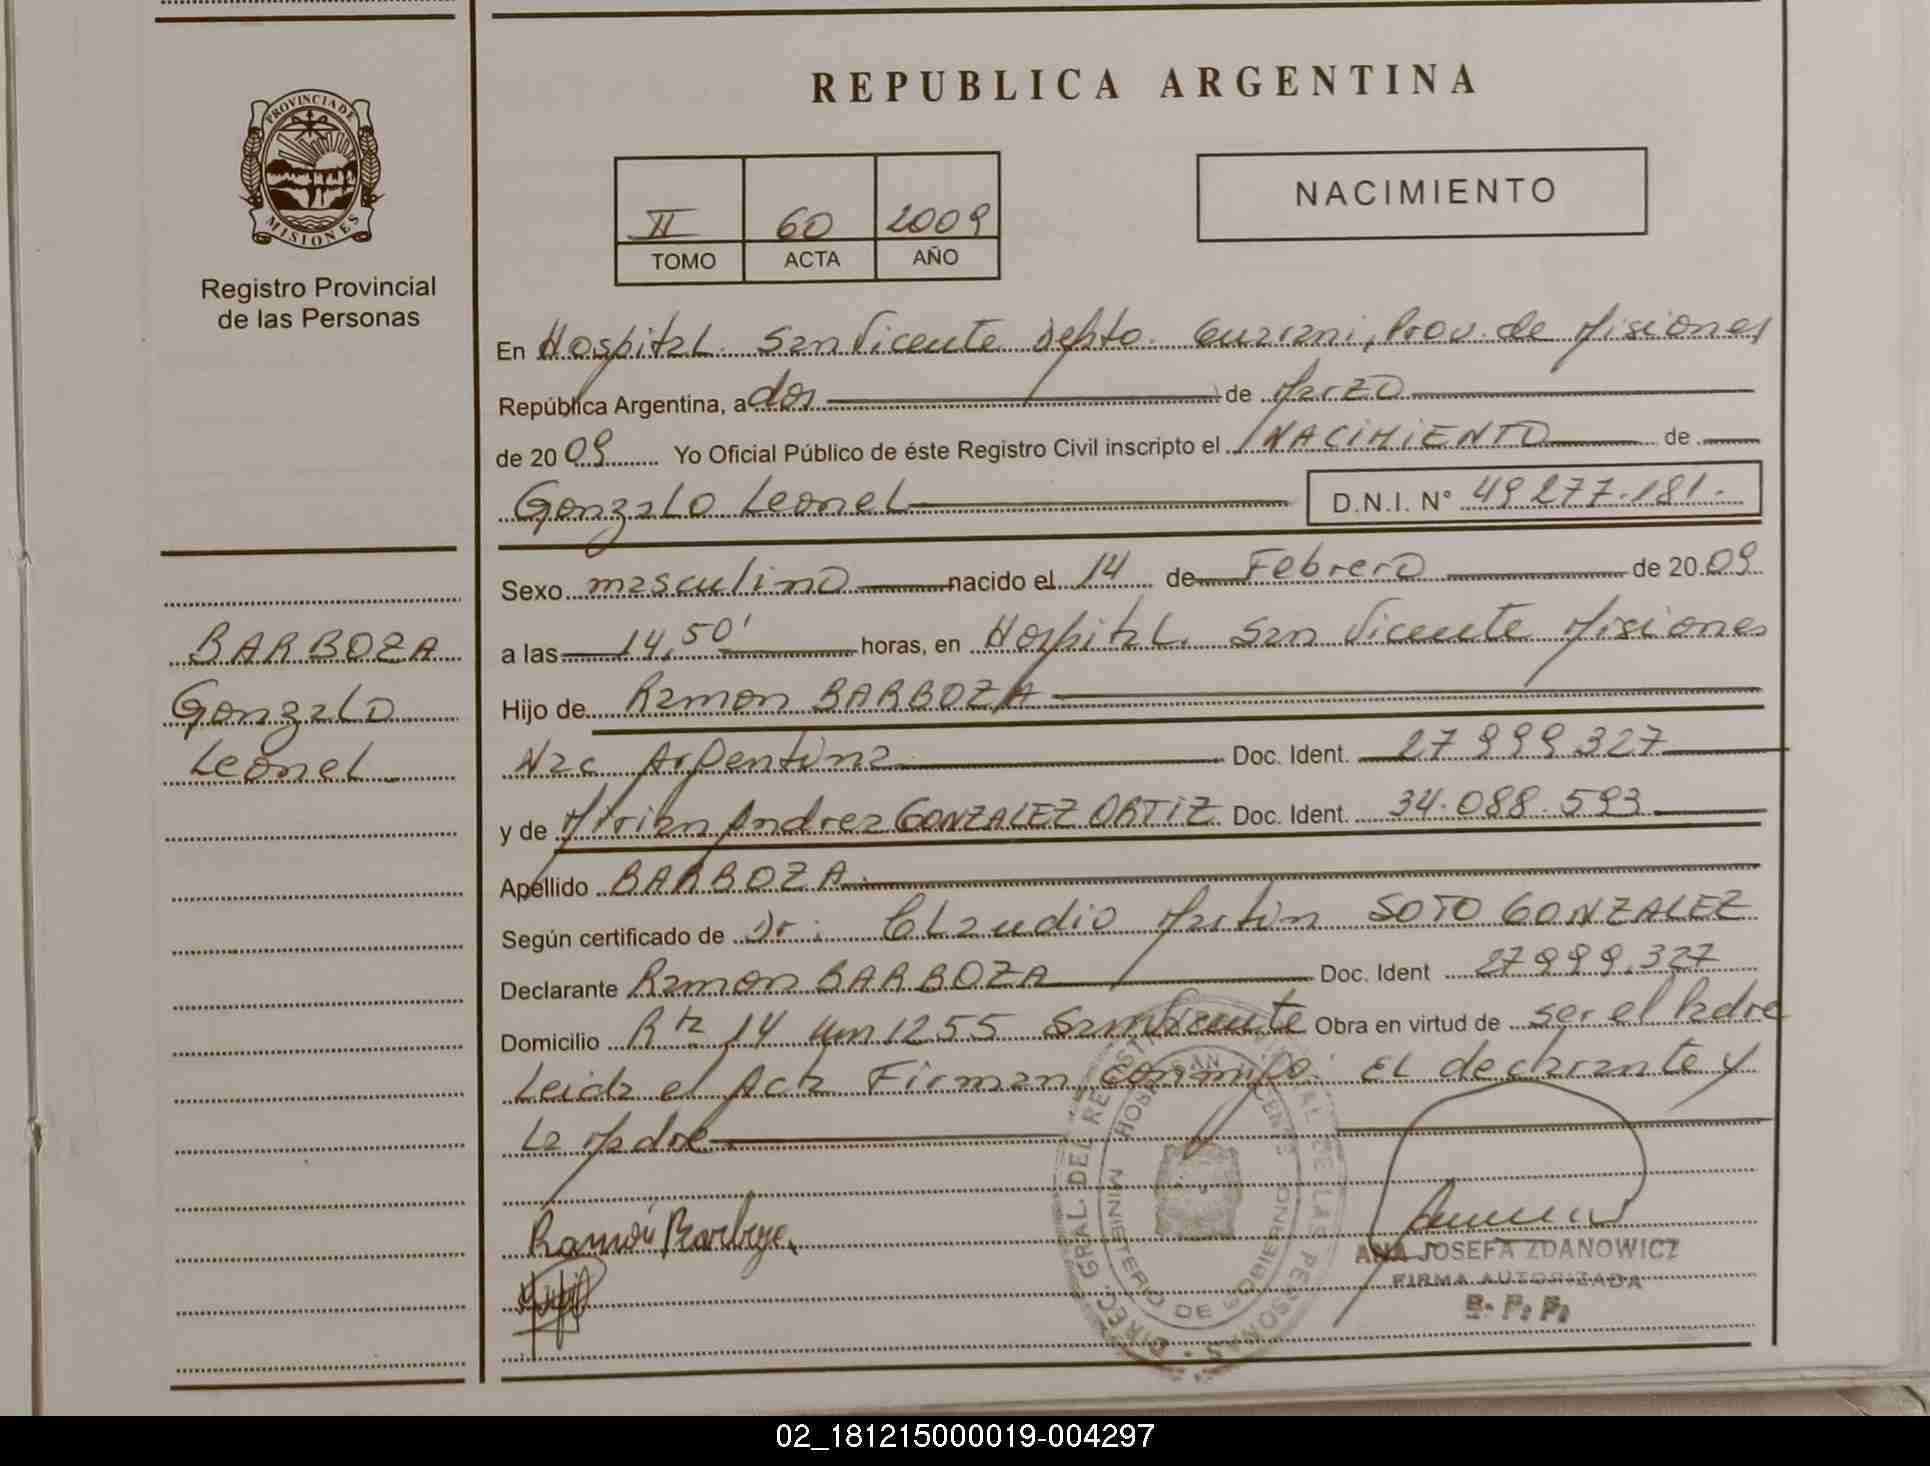 PROVINCIA DE
MISIONES
Registro Provincial
de las Personas
BARBOZA
Gonzalo
Leonel
REPUBLICA ARGENTINA
II 60 2009
TOMO ACTA AÑO
NACIMIENTO
En Hospital San Vicente Depto. Guarani, Prov. de Misiones
República Argentina, a dos de Marzo
de 2009 Yo Oficial Público de éste Registro Civil inscripto el NACIMIENTO de
Gonzalo Leonel D.N.I. N° 49277.181.-
Sexo masculino nacido el 14 de Febrero de 2009
a las 14,50' horas, en Hospital San Vicente Misiones
Hijo de Ramon BARBOZA
Nac Argentina Doc. Ident. 27999327
y de Mirian Andrea GONZALEZ ORTIZ Doc. Ident. 34.088.593
Apellido BARBOZA.
Según certificado de Dr: Claudio Martin SOTO GONZALEZ
Declarante Ramon BARBOZA Doc. Ident 27999.327
Domicilio Rta 14 Km 1255 San Vicente Obra en virtud de ser el Padre
Leida el Acta Firman conmigo: El declarante y
La Madre
Ramón
ANA JOSEFA ZDANOWICZ
FIRMA AUTORIZADA
R. P. P.
MINISTERIO DE GOBIERNO
02_181215000019-004297